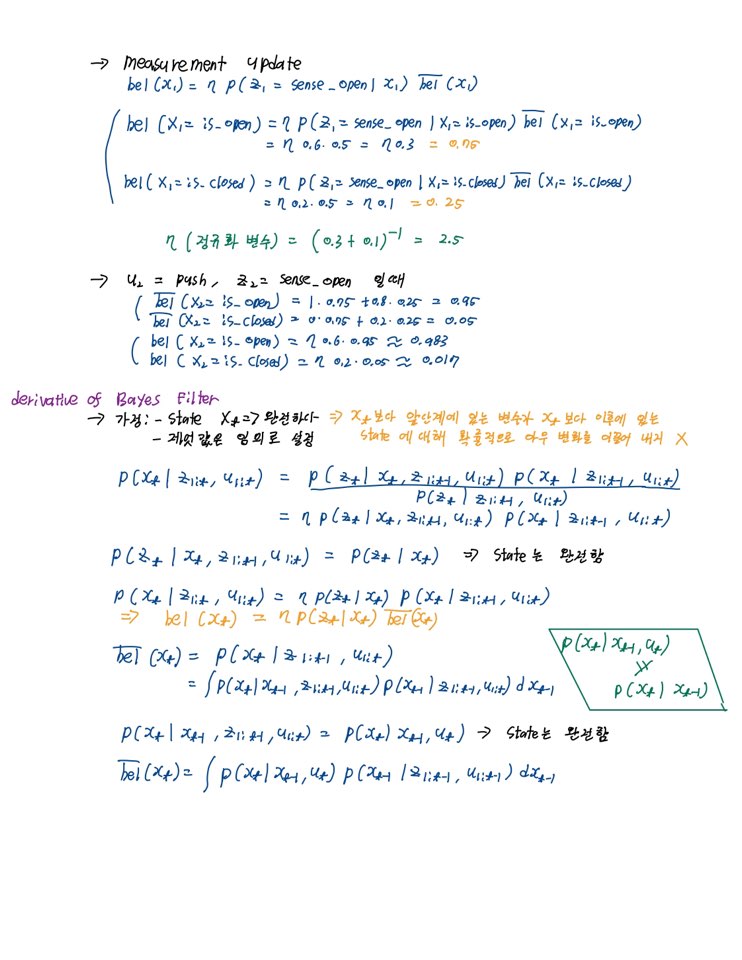 → measurement update
bel(x₁) = η p(z₁ = sense_open | x₁) b̅e̅l̅(x₁)
bel(X₁ = is_open) = η p(z₁ = sense_open | X₁ = is_open) b̅e̅l̅(X₁ = is_open)
= η 0.6 · 0.5 = η 0.3 = 0.75
bel(X₁ = is_closed) = η p(z₁ = sense_open | X₁ = is_closed) b̅e̅l̅(X₁ = is_closed)
= η 0.2 · 0.5 = η 0.1 = 0.25
η (정규화 변수) = (0.3 + 0.1)⁻¹ = 2.5
→ u₂ = push, z₂ = sense_open 일때
b̅e̅l̅(X₂ = is_open) = 1 · 0.75 + 0.8 · 0.25 = 0.95
b̅e̅l̅(X₂ = is_closed) = 0 · 0.75 + 0.2 · 0.25 = 0.05
bel(X₂ = is_open) = η 0.6 · 0.95 ≈ 0.983
bel(X₂ = is_closed) = η 0.2 · 0.05 ≈ 0.017
derivative of Bayes Filter
→ 가정: - State Xₜ => 완전하다 => xₜ보다 앞단계에 있는 변수가 xₜ보다 이후에 있는
- 제엇값은 임의로 설정 state에 대해 확률적으로 아무 변화를 이끌어 내지 X
p(xₜ | z₁:ₜ, u₁:ₜ) = p(zₜ | xₜ, z₁:ₜ₋₁, u₁:ₜ) p(xₜ | z₁:ₜ₋₁, u₁:ₜ)
p(zₜ | z₁:ₜ₋₁, u₁:ₜ)
= η p(zₜ | xₜ, z₁:ₜ₋₁, u₁:ₜ) p(xₜ | z₁:ₜ₋₁, u₁:ₜ)
p(zₜ | xₜ, z₁:ₜ₋₁, u₁:ₜ) = p(zₜ | xₜ) => State는 완전함
p(xₜ | z₁:ₜ, u₁:ₜ) = η p(zₜ | xₜ) p(xₜ | z₁:ₜ₋₁, u₁:ₜ)
=> bel(xₜ) = η p(zₜ | xₜ) b̅e̅l̅(xₜ)
b̅e̅l̅(xₜ) = p(xₜ | z₁:ₜ₋₁, u₁:ₜ)
= ∫ p(xₜ | xₜ₋₁, z₁:ₜ₋₁, u₁:ₜ) p(xₜ₋₁ | z₁:ₜ₋₁, u₁:ₜ) dxₜ₋₁
p(xₜ | xₜ₋₁, uₜ)
p(xₜ | xₜ₋₁)
p(xₜ | xₜ₋₁, z₁:ₜ₋₁, u₁:ₜ) = p(xₜ | xₜ₋₁, uₜ) → State는 완전함
b̅e̅l̅(xₜ) = ∫ p(xₜ | xₜ₋₁, uₜ) p(xₜ₋₁ | z₁:ₜ₋₁, u₁:ₜ₋₁) dxₜ₋₁